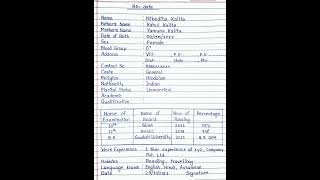 Bio data
Name : Nibedita Kalita
Father's Name : Rahul Kalita
Mother's Name : Yamuna Kalita
Date of Birth : 00/mm/yyyy
Sex : Female
Blood Group : O+
Address : Vill-     , P.O-     , P.S-
Dist-     , State-     , Pin-
Contact No :
Caste : General
Religion : Hinduism
Nationality : Indian
Marital Status : Unmarried
Academic
Qualification :
Name of Examination
Name of Board
Year of Passing
Percentage
10th
12th
B.A Gauhati University
Work Experience : 1 Year experience at xyz, Company
Pvt. Ltd
Hobbies : Reading, travelling
Language known : English, Hindi, Assamese
Date : Signature